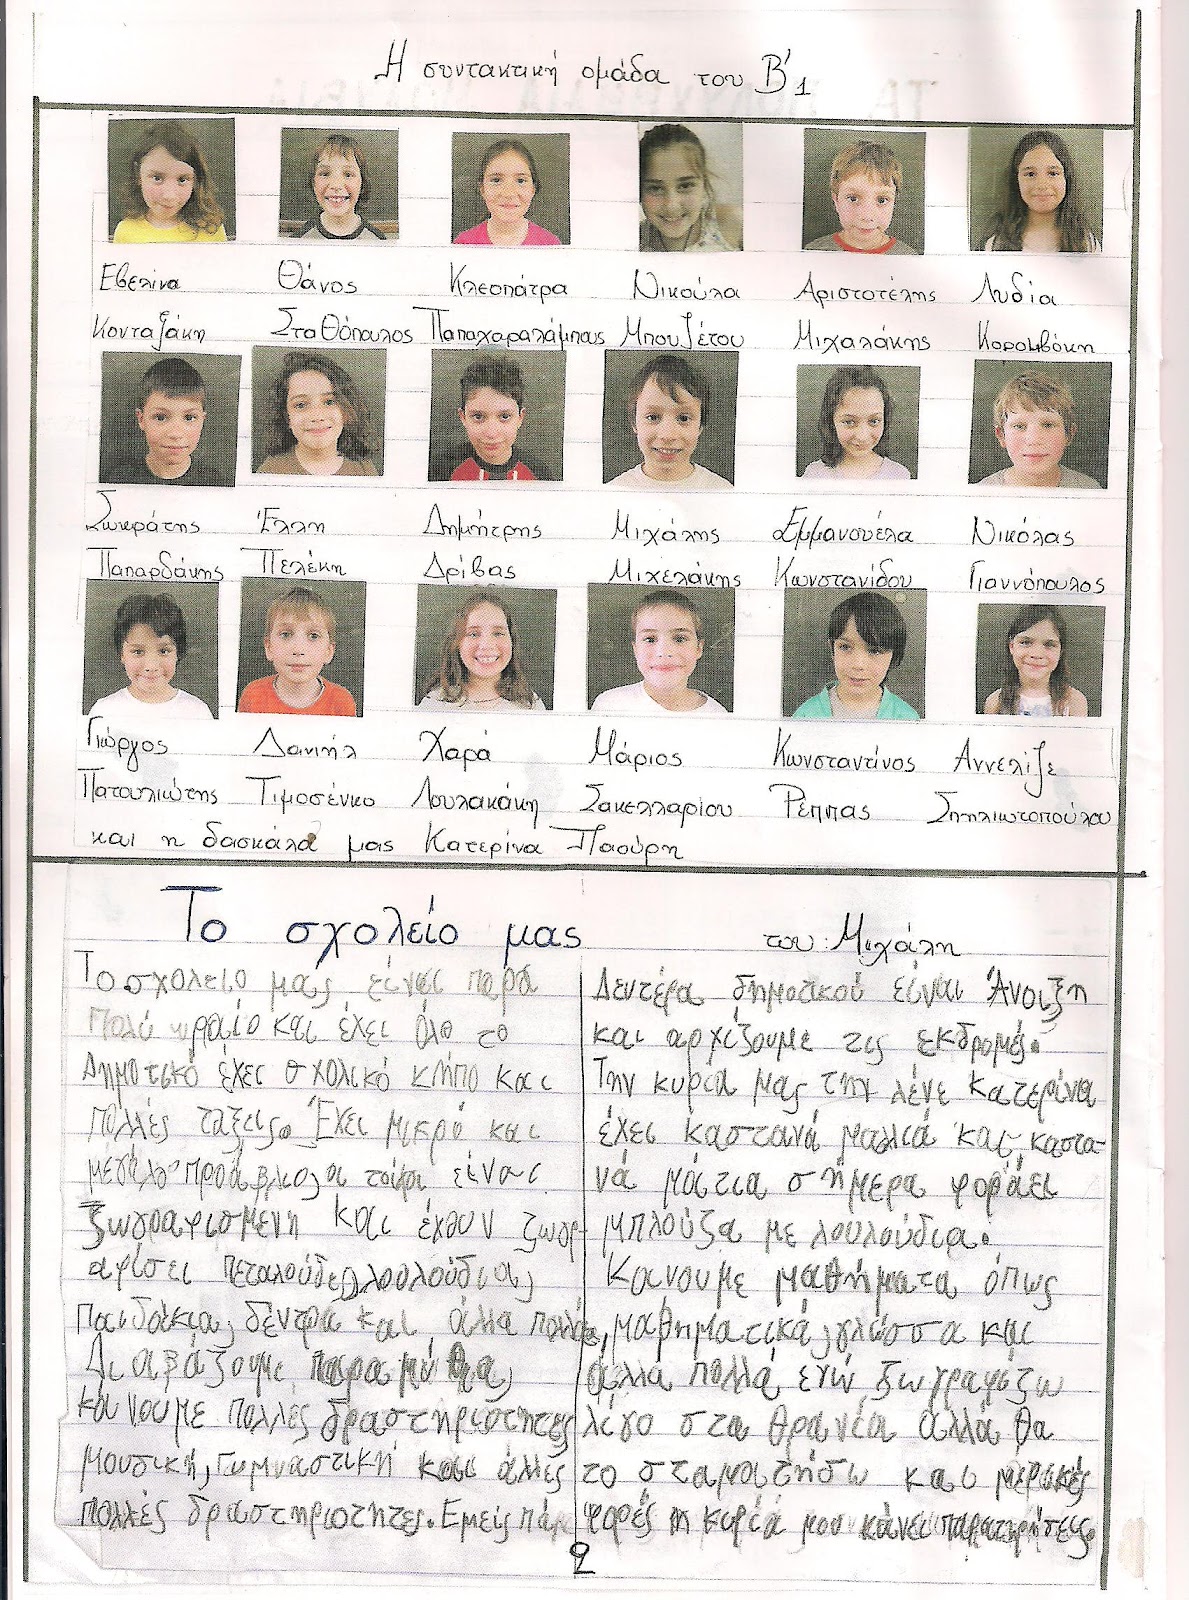 Η συντακτική ομάδα του Β'1
Εβελίνα Θάνος Κλεοπάτρα Νικούλα Αριστοτέλης Λυδία
Κονταξάκη Σταθόπουλος Παπαχαραλάμπους Μπουζέτου Μιχαλάκης Κορομβόκη
Σωκράτης Έλλη Δημήτρης Μιχάλης Εμμανουέλα Νικόλας
Παπαρδάκης Πελέκη Δρίβας Μιχελάκης Κωνστανίδου Γιαννόπουλος
Γιώργος Δανιήλ Χαρά Μάριος Κωνσταντίνος Αννελίζε
Πατουλιώτης Τιμοσένκο Λουλακάκη Σακελλαρίου Ρέππας Σπηλιωτοπούλου
και η δασκάλα μας Κατερίνα Παούρη
Το σχολείο μας
του Μιχάλη
Το σχολειο μας είναι παρα
πολύ ωραίο και έχει όλο το
Δημοτικό έχει σχολικό κήπο και
πολλές τάξεις. Έχει μικρό και
μεγάλο προάβλιο, οι τοίχοι είναι
ζωγραφισμενη και έχουν ζωγρ-
αφίσει πεταλούδες, λουλούδια,
παιδάκια, δέντρα και άλλα πολλά,
Διαβάζουμε παραμύθια,
κάνουμε πολλές δραστηριότητες
μουσική, Γυμναστική και άλλες
πολλές δραστηριοτητες. Εμείς πάμε
Δευτέρα δημοτικού είναι Άνοιξη
και αρχίζουμε τις εκδρομές.
Την κυρία μας την λένε κατερίνα
έχει καστανά μαλιά και καστα-
νά μάτια σήμερα φοράει
μπλούζα με λουλούδια.
Κάνουμε μαθήματα όπως
μαθηματικά, γλώσσα και
άλλα πολλά εγώ ζωγραφίζω
λίγο στα θρανία αλλά θα
το σταματήσω και μερικές
φορές η κυρία μου κάνει παρατηρήσεις.
2